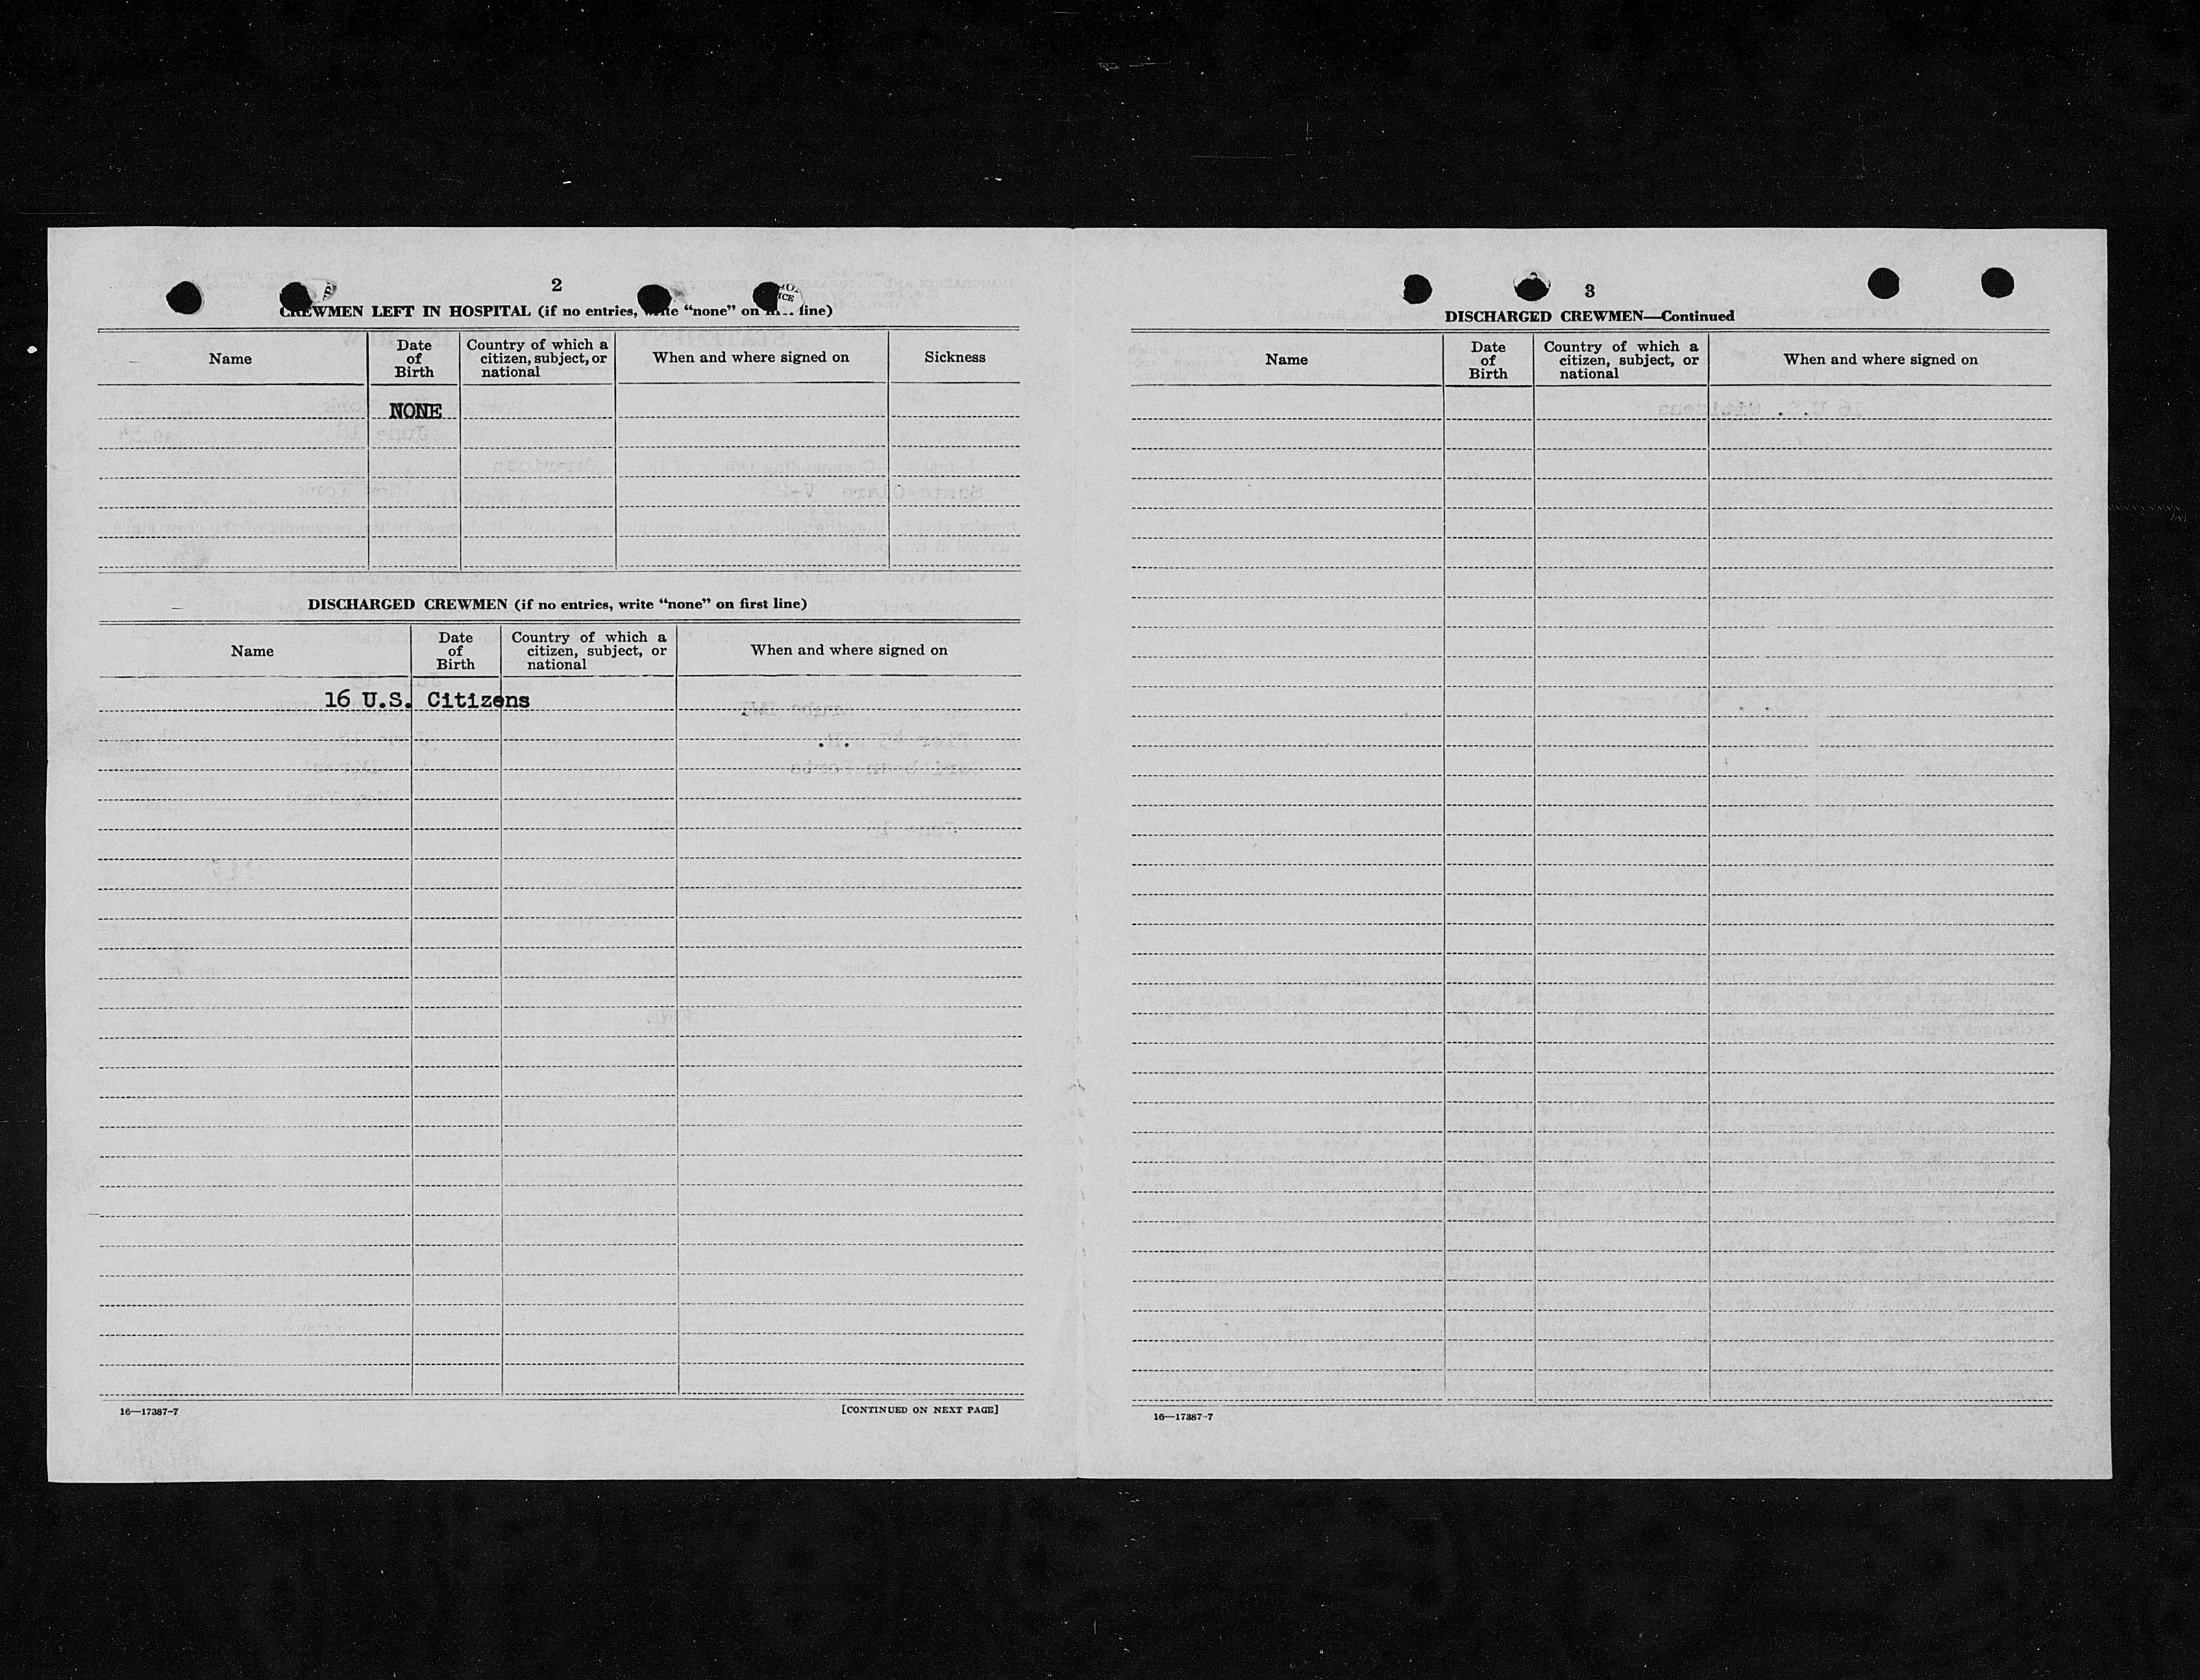 2
CREWMEN LEFT IN HOSPITAL (if no entries, write “none” on line)
Name
Date of Birth
Country of which a citizen, subject, or national
When and where signed on
Sickness
NONE
DISCHARGED CREWMEN (if no entries, write “none” on first line)
Name
Date of Birth
Country of which a citizen, subject, or national
When and where signed on
16 U.S. Citizens
16—17387-7
[CONTINUED ON NEXT PAGE]
3
DISCHARGED CREWMEN—Continued
Name
Date of Birth
Country of which a citizen, subject, or national
When and where signed on
16—17387-7